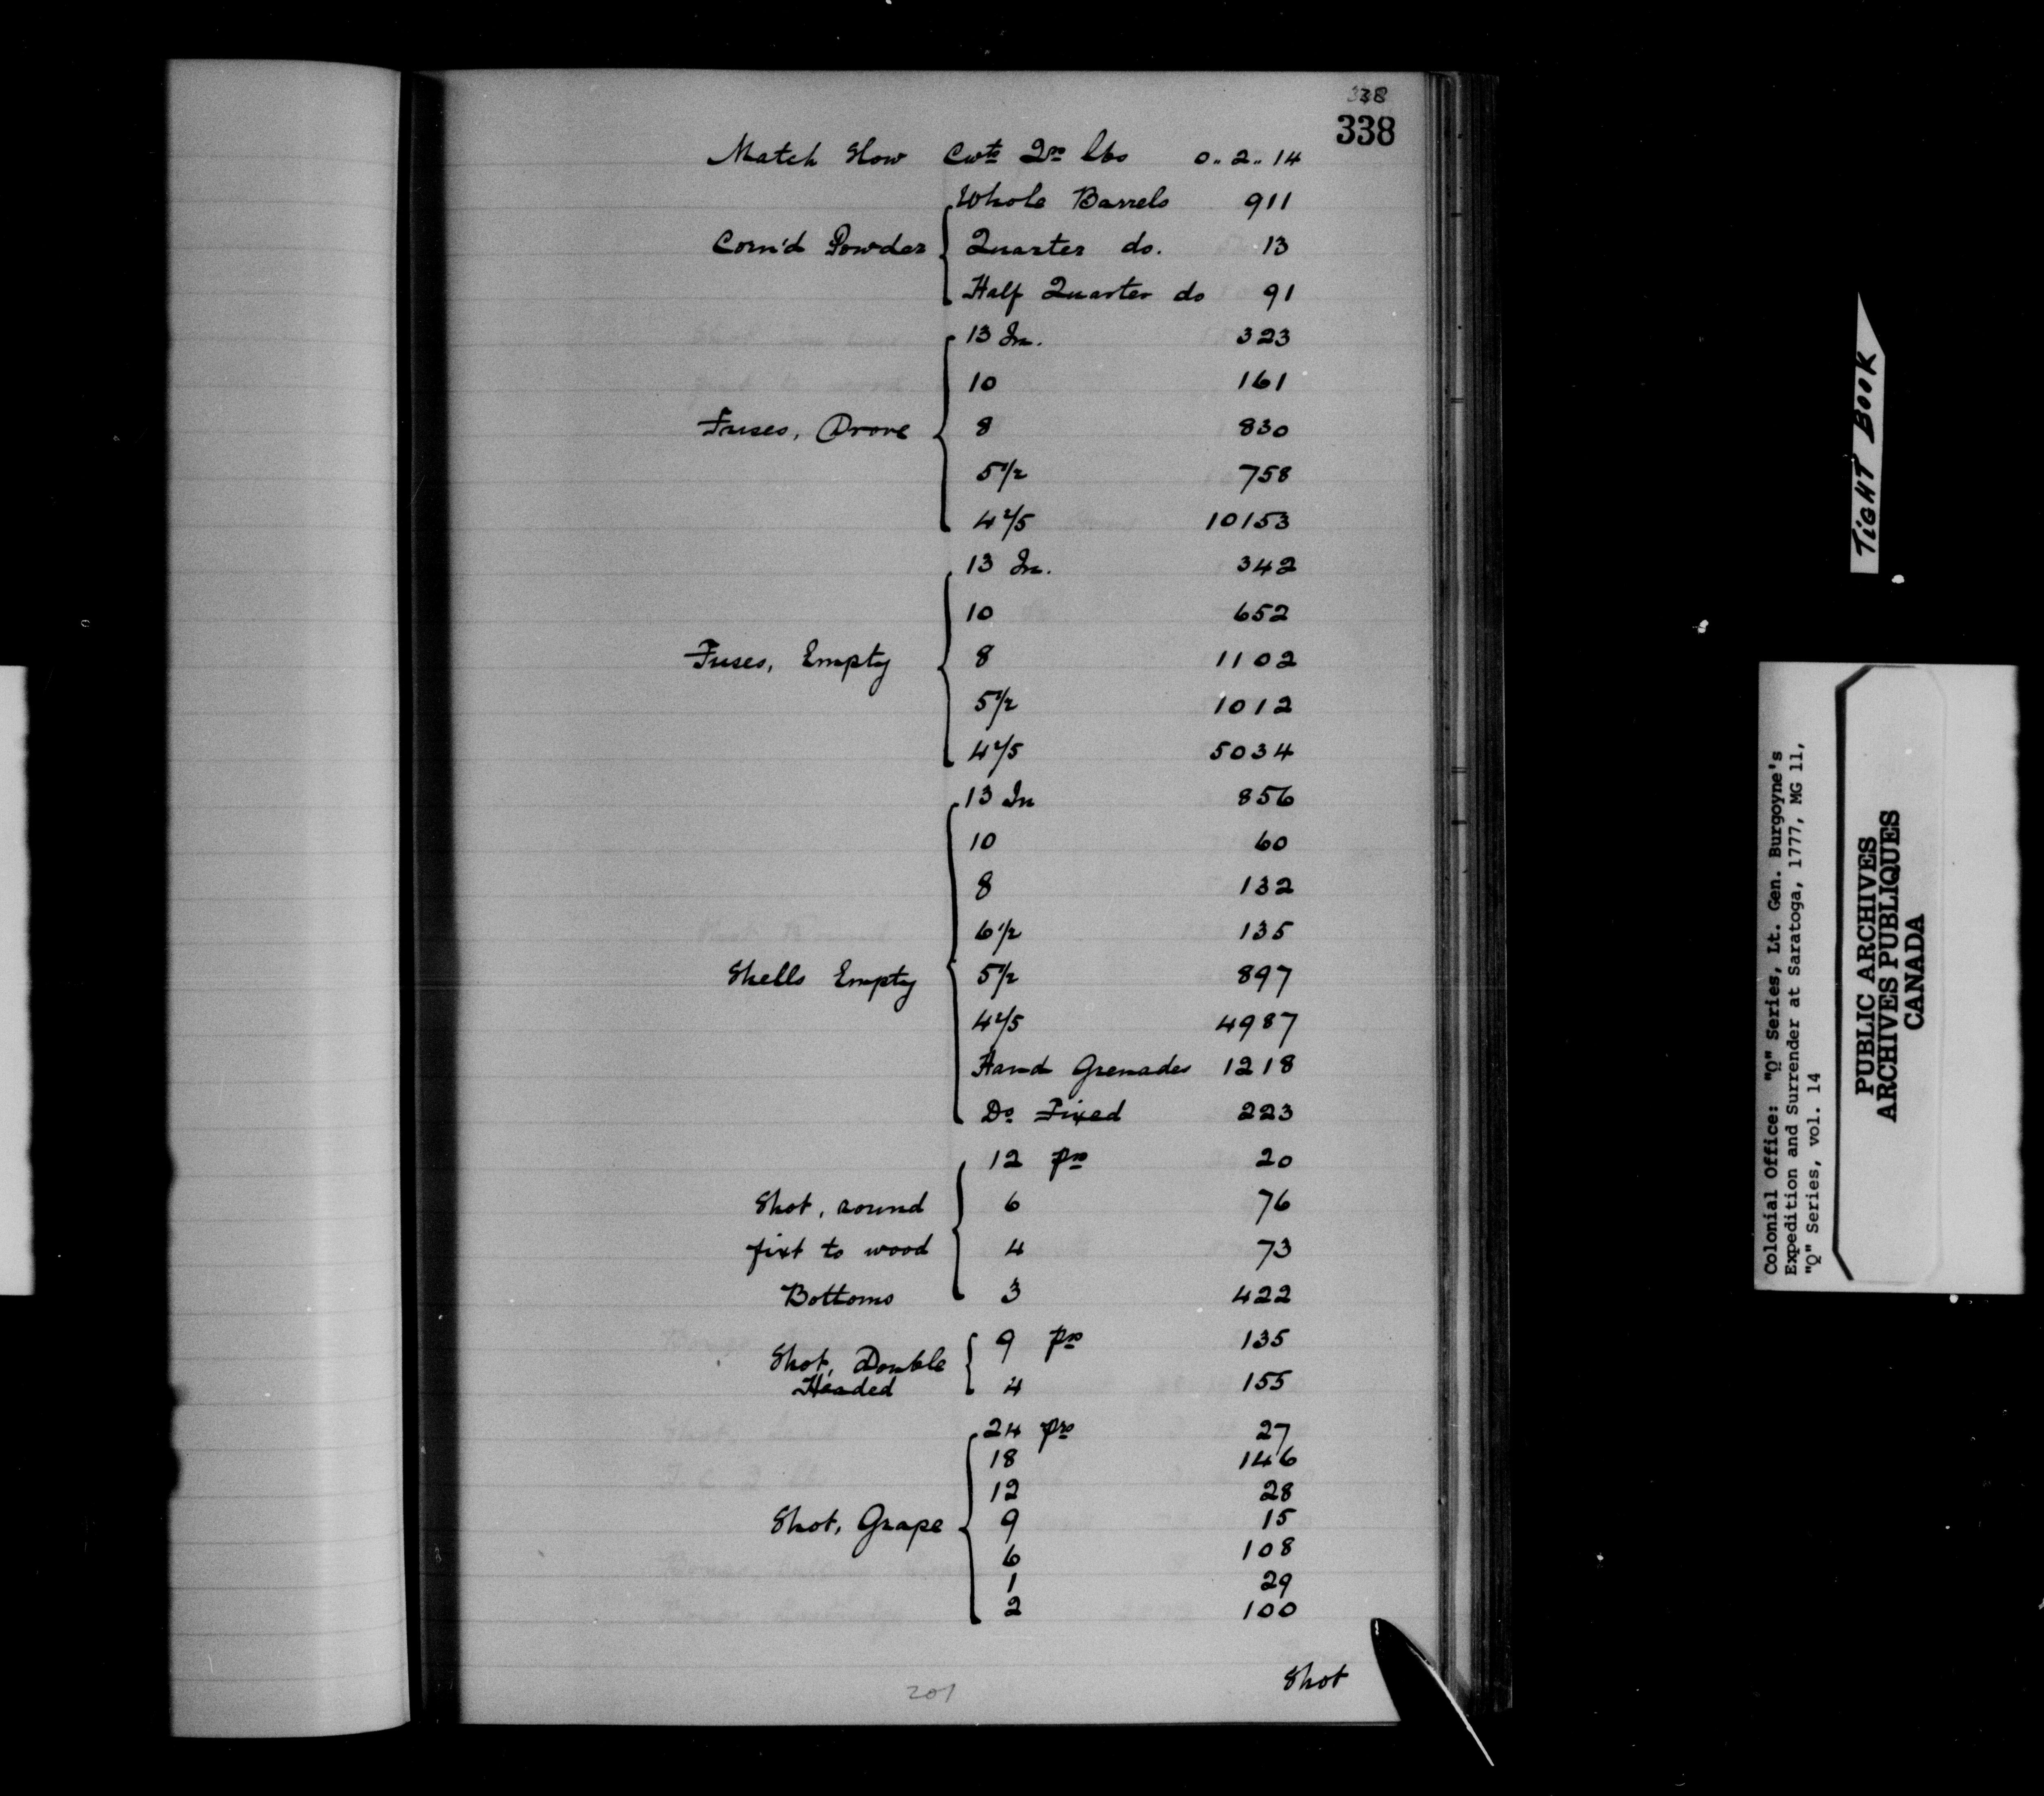 338
338
Match Slow Cwts Qrs lbs 0.. 2.. 14
Whole Barrels 911
Corn'd Powder Quarter do. 13
Half Quarter do 91
13 In. 323
10 161
Fuses, Drove 8 830
5 1/2 758
4 2/5 10153
13 In. 342
10 652
Fuses, Empty 8 1102
5 1/2 1012
4 2/5 5034
13 In 856
10 60
8 132
6 1/2 135
Shells Empty 5 1/2 897
4 2/5 4987
Hand Grenades 1218
Do Fixed 223
12 prs 20
Shot, round 6 76
fixt to wood 4 73
Bottoms 3 422
9 prs 135
Shot, Double
Headed 4 155
24 prs 27
18 146
12 28
Shot, Grape 9 15
6 108
1 29
2 100
Shot
201
TIGHT BOOK
Colonial Office: "Q" Series, Lt. Gen. Burgoyne's
Expedition and Surrender at Saratoga, 1777, MG 11,
"Q" Series, vol. 14
PUBLIC ARCHIVES
ARCHIVES PUBLIQUES
CANADA